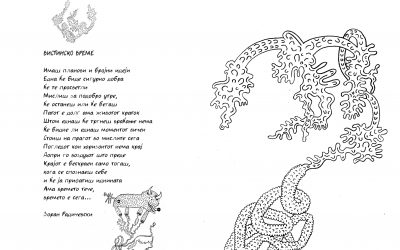 ВИСТИНСКО ВРЕМЕ
Имаш планови и бројни идеи
Една ќе биде сигурно добра
ќе те просветли
Мислиш за подобро утре,
ќе останеш или ќе бегаш
Патот е долг ама животот краток
Штом еднаш ќе тргнеш враќање нема
Ќе биде ли еднаш моментот вичен
Стоиш на прагот во мислите сега
Погледот кон хоризонтот нема крај
Допри го воздухот што прође
Крајот е бескраен само тогаш,
кога се спознаеш себе
и ќе ја пригатиш тишината
Ама времето тече,
времето е сега...
Зоран